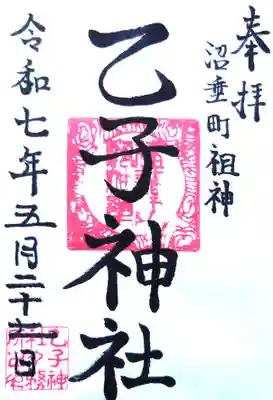 奉拝
沼垂町祖神
乙子神社
令和七年五月二十六日